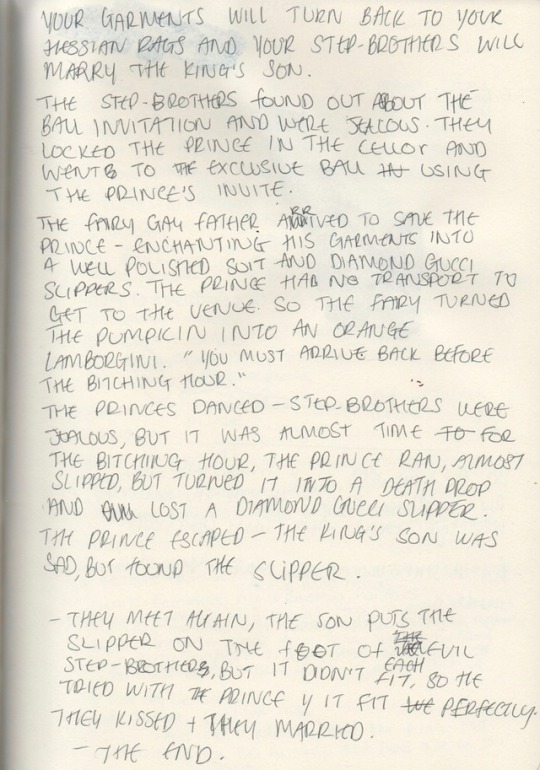 YOUR GARMENTS WILL TURN BACK TO YOUR
HESSIAN RAGS AND YOUR STEP-BROTHERS WILL
MARRY THE KING'S SON.
THE STEP-BROTHERS FOUND OUT ABOUT THE
BALL INVITATION AND WERE JEALOUS. THEY
LOCKED THE PRINCE IN THE CELLOR AND
WENT TO THE EXCLUSIVE BALL USING
THE PRINCE'S INVITE.
THE FAIRY GAY FATHER ARRIVED TO SAVE THE
PRINCE - ENCHANTING HIS GARMENTS INTO
A WELL POLISHED SUIT AND DIAMOND GUCCI
SLIPPERS. THE PRINCE HAD NO TRANSPORT TO
GET TO THE VENUE. SO THE FAIRY TURNED
THE PUMPKIN INTO AN ORANGE
LAMBORGINI. "YOU MUST ARRIVE BACK BEFORE
THE BITCHING HOUR."
THE PRINCES DANCED - STEP-BROTHERS WERE
JEALOUS, BUT IT WAS ALMOST TIME TO FOR
THE BITCHING HOUR, THE PRINCE RAN, ALMOST
SLIPPED, BUT TURNED IT INTO A DEATH DROP
AND LOST A DIAMOND GUCCI SLIPPER.
THE PRINCE ESCAPED - THE KING'S SON WAS
SAD, BUT FOUND THE SLIPPER.
- THEY MEET AGAIN, THE SON PUTS THE
SLIPPER ON THE FOOT OF THE EVIL
STEP-BROTHERS, BUT IT DIDN'T EACH FIT, SO HE
TRIED WITH THE PRINCE Y IT FIT PERFECTLY.
THEY KISSED + THEY MARRIED.
- THE END.